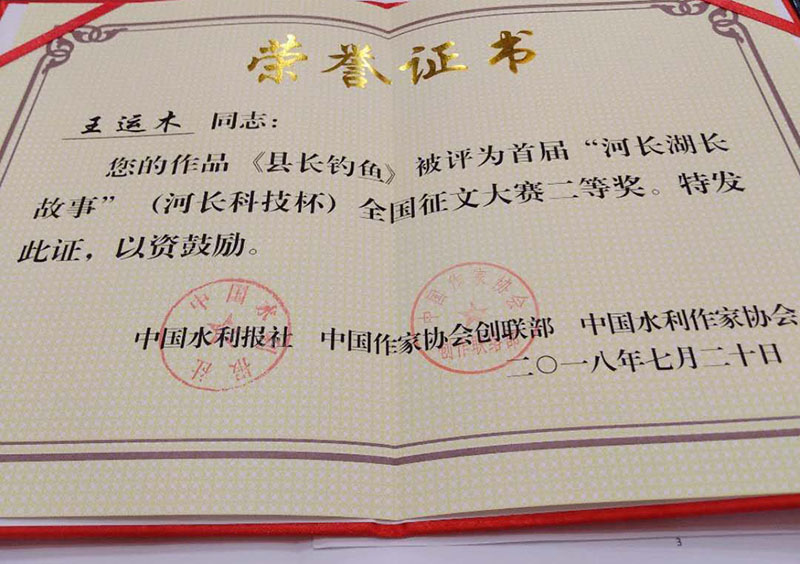 荣誉证书
王运木 同志：
您的作品《县长钓鱼》被评为首届“河长湖长
故事”（河长科技杯）全国征文大赛二等奖。特发
此证，以资鼓励。
中国水利报社 中国作家协会创联部 中国水利作家协会
二〇一八年七月二十日
中国水利报社
中国作家协会
创作联络部
3